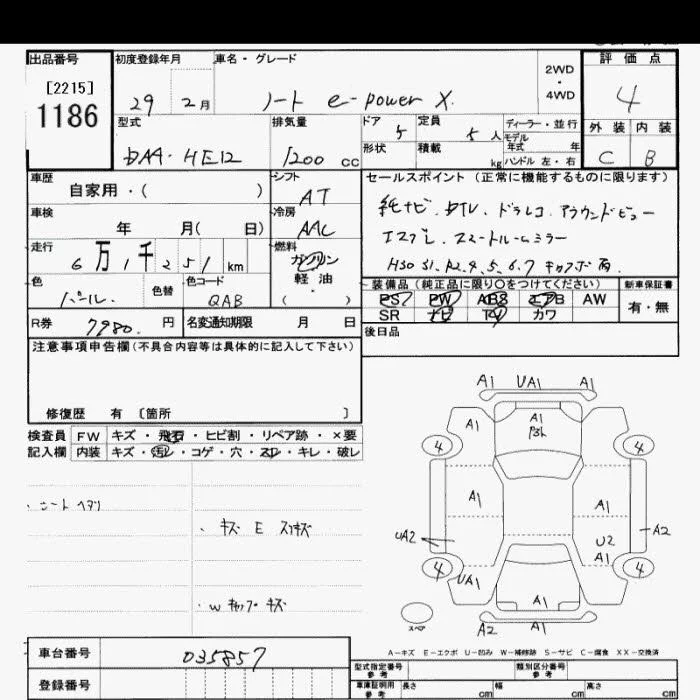 出品番号
[2215]
1186
初度登録年月
29 2月
車名・グレード
ノート e-power X
2WD
・
4WD
評価点
4
外装 内装
C B
型式
DAA-HE12
排気量
1200 cc
ドア
5
定員
5人
ディーラー・並行
モデル
年式 年
形状
積載
kg
ハンドル 左・右
車歴
自家用・( )
シフト
AT
車検
年 月(日)
冷房
AAC
走行
6万1千251km
燃料
ガソリン
軽油
・
( )
色
パール
色替
色コード
QAB
R券
7980 円
名変通知期限 月 日
セールスポイント (正常に機能するものに限ります)
純ナビ、DTV、ドラレコ、アラウンドビュー
エマブレ、スマートルームミラー
装備品(純正品に限り〇をつけてください)
PS PW ABS エアB AW
SR ナビ TV カワ
新車保証書
有・無
後日品
注意事項申告欄(不具合内容等は具体的に記入して下さい)
修復歴 有〔箇所 〕
検査員
記入欄
FW キズ・飛石・ヒビ割・リペア跡・×要
内装 キズ・汚レ・コゲ・穴・スレ・キレ・破レ
・シートヘタリ
・キズ E スリキズ
・W キャップキズ
A1 UA1 A1
A1
A1
4
4
A1
A1
UA2
U2
A2
A1
4
4
UA1
A1
A2
A1
スペア
A-キズ E-エクボ U-凹み W-補修跡 S-サビ C-腐食 XX-交換済
車台番号
035857
登録番号
型式指定番号
参考
類別区分番号
参考
車庫証明用
参考
長さ cm
幅 cm
高さ cm